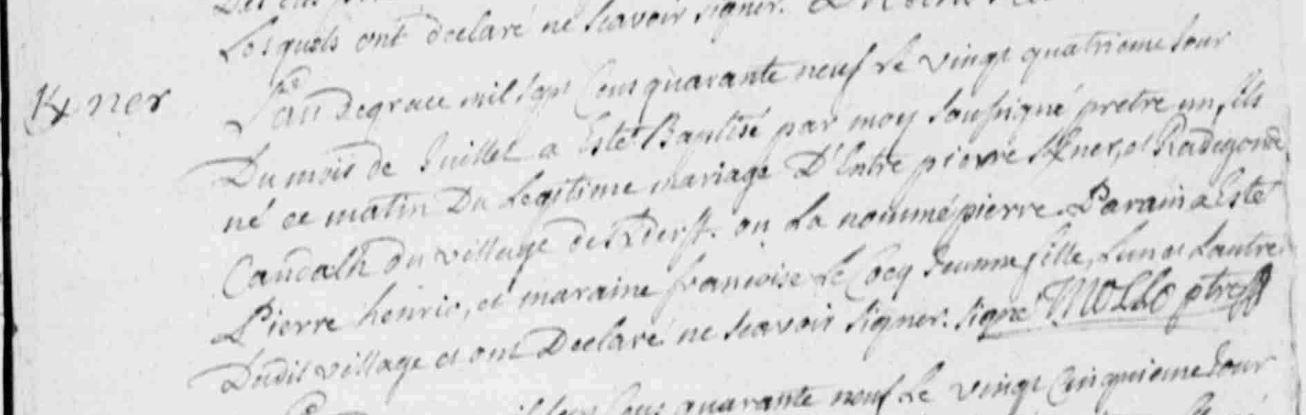 Lesquels ont declaré ne scavoir signer.
Kner
L'an de grace mil sept Cens quarante neuf Le vingt quatrieme Jour
Du mois de Juillet a Esté Baptisé par moy soussigné pretre un fils
né ce matin Du Legitime mariage D'Entre pierre Kner, et Radegonde
Caudalh du village de Kderff. on La nommé pierre. Parain a Esté
Pierre henrio, et maraine francoise Le Cocq Jeunne fille, Lun et Lautre
Dudit village et ont Declaré ne scavoir signer. signé MOLLO ptre
quarante neuf Le vingt Cinquieme Jour